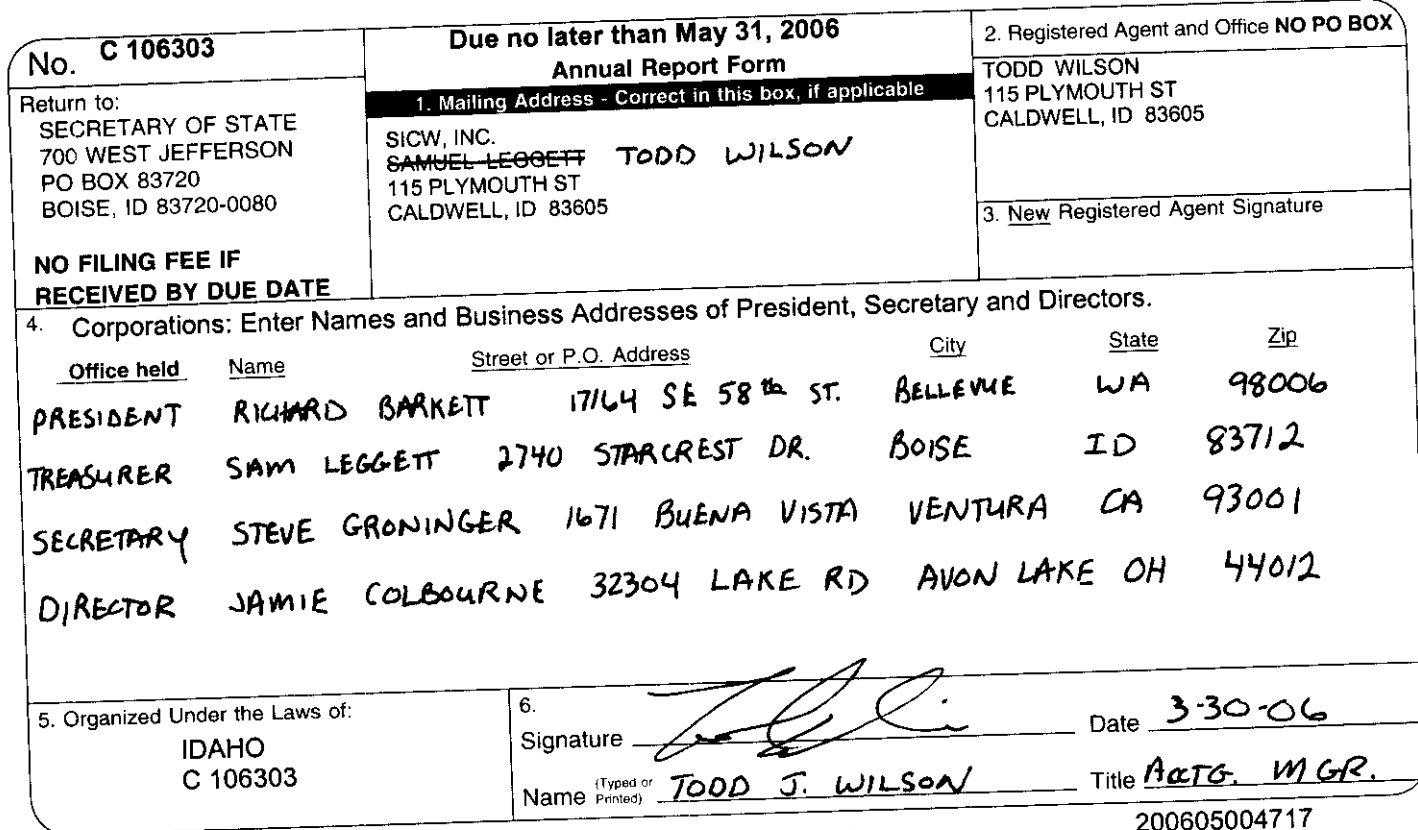 No. C 106303
Return to:
SECRETARY OF STATE
700 WEST JEFFERSON
PO BOX 83720
BOISE, ID 83720-0080
NO FILING FEE IF
RECEIVED BY DUE DATE
Due no later than May 31, 2006
Annual Report Form
1. Mailing Address - Correct in this box, if applicable
SICW, INC.
SAMUEL LEGGETT TODD WILSON
115 PLYMOUTH ST
CALDWELL, ID 83605
2. Registered Agent and Office NO PO BOX
TODD WILSON
115 PLYMOUTH ST
CALDWELL, ID 83605
3. New Registered Agent Signature
4. Corporations: Enter Names and Business Addresses of President, Secretary and Directors.
Office held Name Street or P.O. Address City State Zip
PRESIDENT RICHARD BARKETT 17164 SE 58th ST. BELLEVUE WA 98006
TREASURER SAM LEGGETT 2740 STARCREST DR. BOISE ID 83712
SECRETARY STEVE GRONINGER 1671 BUENA VISTA VENTURA CA 93001
DIRECTOR JAMIE COLBOURNE 32304 LAKE RD AVON LAKE OH 44012
5. Organized Under the Laws of:
IDAHO
C 106303
6.
Signature
Date 3-30-06
Name (Typed or Printed) TODD J. WILSON
Title ACCTG. MGR.
200605004717